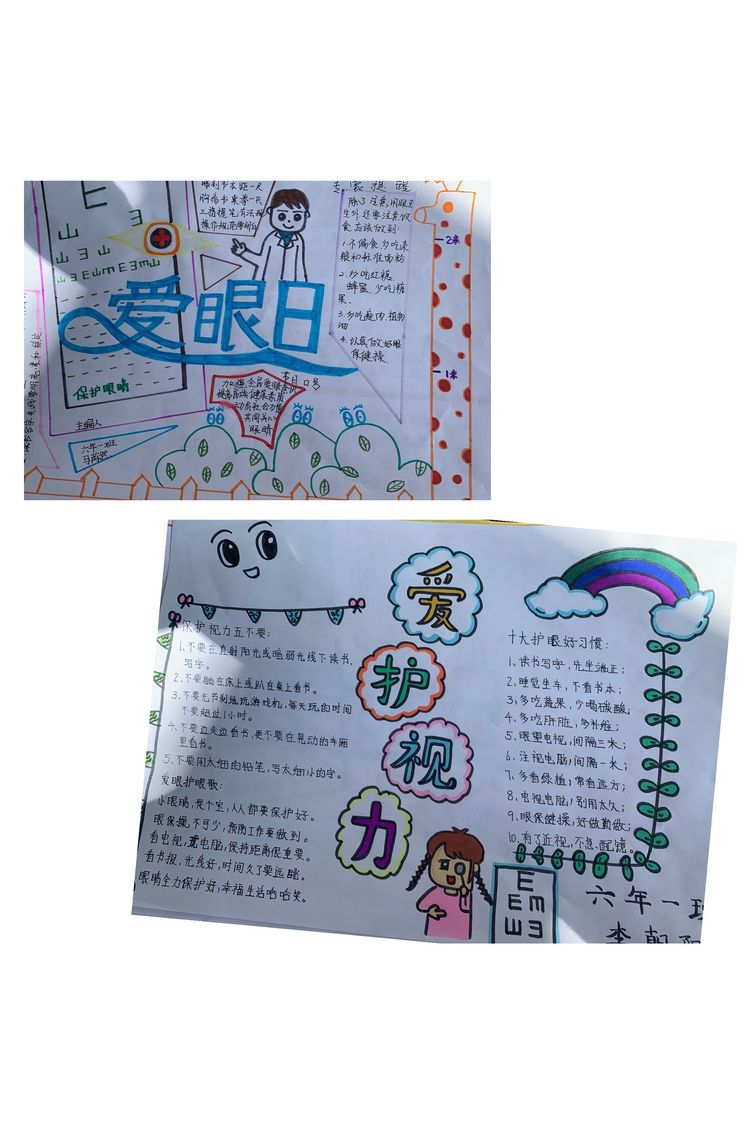 眼到书本距一尺
胸前书桌拳一民
E
山 ヨ
山 ヨ 山
山 ヨ E 山 m E ヨ m 山
爱眼日
保护眼睛
主编人
六年一班
节日口号
共同关心
眼睛
专家提醒
除了注意用眼卫
生外还要注意饮
食应该做到:
1.不偏食,多吃杂
粮和标准面粉
2.少吃红糖、
蜂蜜、少吃糖
果。
3.多吃瘦肉、植物
油
4.认真做好眼
保健操
2米
1米
爱护视力
保护视力五不要:
1、不要在直射阳光或暗弱光线下读书、
写字。
2、不要躺在床上或趴在桌上看书。
3、不要无节制地玩游戏机,每天玩的时间
不要超过1小时。
4、不要边走边看书,更不要在晃动的车厢
里看书。
5、不要用太细的铅笔,写太细小的字。
爱眼护眼歌:
小眼睛,是个宝,人人都要保护好。
眼保操,不可少,预防工作要做到。
看电视,电脑,保持距离很重要。
看书报,光线好,时间久了要远眺。
眼睛全力保护好,幸福生活哈哈笑。
十大护眼好习惯:
1、读书写字,先坐端正;
2、睡觉坐车,不看书本;
3、多吃蔬果,少喝碳酸;
4、多吃肝脏,多补维;
5、眼望电视,间隔三米;
6、注视电脑,间隔一米;
7、多看绿植,常看远方;
8、电视电脑,别用太久;
9、眼保健操,好做勤做;
10、有了近视,不急配镜。
E
E m
山 ヨ
六年一班
李朝阳